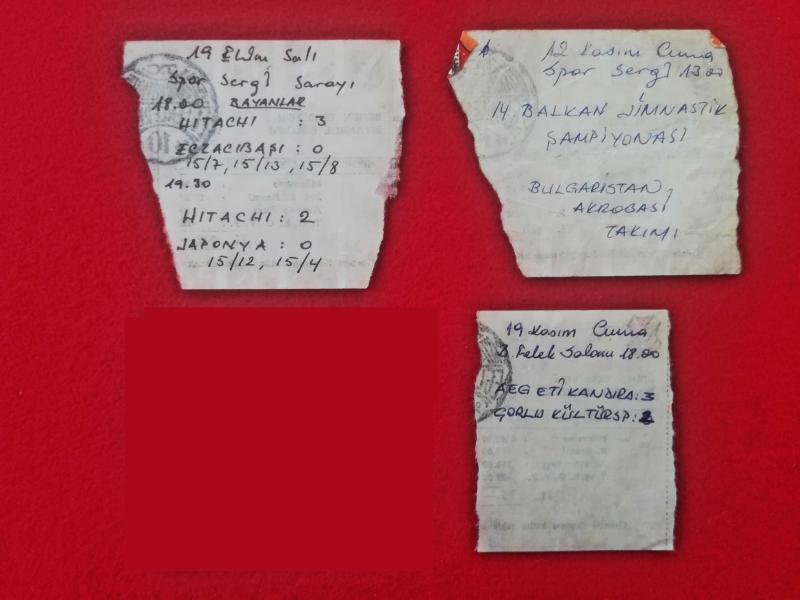 19 Ekim Salı
Spor Sergi Sarayı
18.00 BAYANLAR
HITACHI : 3
ECZACIBAŞI : 0
15/7, 15/13, 15/8
19.30
HITACHI : 2
JAPONYA : 0
15/12, 15/4
12 Kasım Cuma
Spor Sergi 13.00
14. BALKAN JİMNASTİK
ŞAMPİYONASI
BULGARİSTAN
AKROBASİ
TAKIMI
19 Kasım Cuma
B. Felek Salonu 18.00
AEG ETİ KANDIRA: 3
ÇORLU KÜLTÜRSP: 2